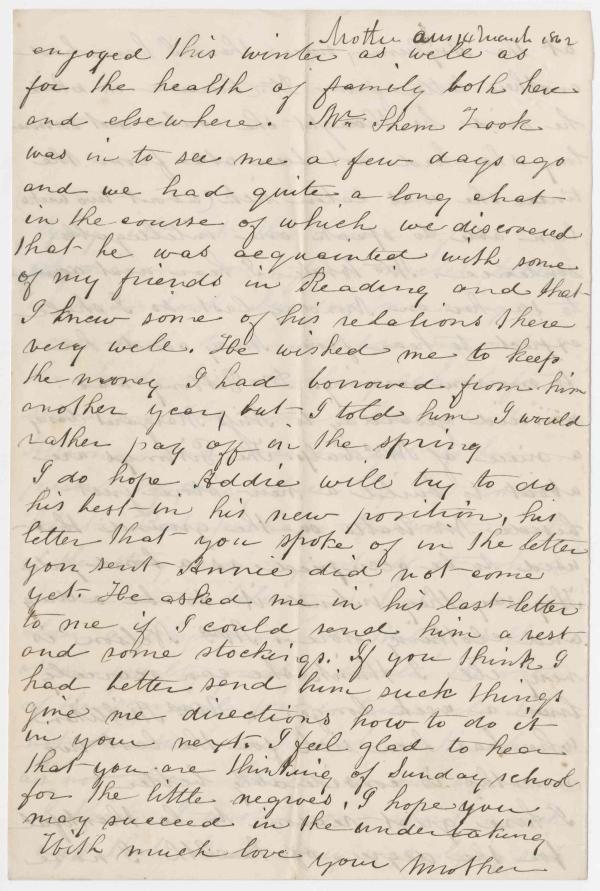 Mother ans 14 March 1862
enjoyed this winter as well as
for the health of family both here
and elsewhere. Mr. Shem Zook
was in to see me a few days ago
and we had quite a long chat
in the course of which we discovered
that he was acquainted with some
of my friends in Reading and that
I knew some of his relations there
very well. He wished me to keep
the money I had borrowed from him
another year, but I told him I would
rather pay off in the spring
I do hope Addie will try to do
his best in his new position, his
letter that you spoke of in the letter
you sent Annie did not come
yet. He asked me in his last letter
to me if I could send him a vest
and some stockings. If you think I
had better send him such things
give me directions how to do it
in your next. I feel glad to hear
that you are thinking of Sunday school
for the little negroes, I hope you
may succeed in the undertaking
With much love your Mother